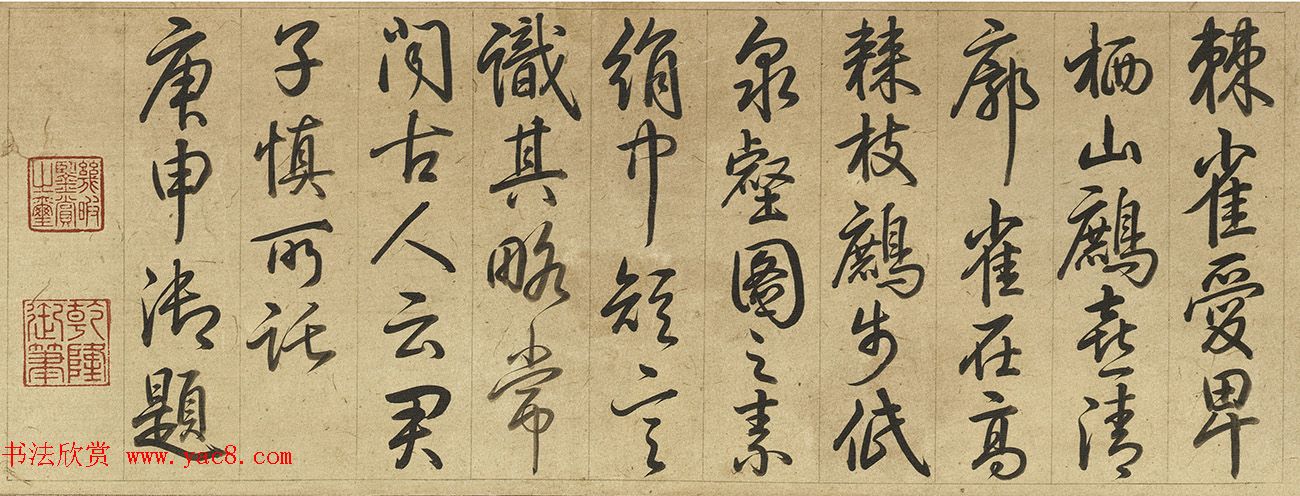 棘雀愛卑
栖山鷓喜清
廓雀在高
棘枝鷓步低
泉壑圖之素
絹巾短言
識其略常
聞古人云君
子慎所託
庚申御題
幾暇
鑒賞
之璽
乾隆
御筆
书法欣赏 www.yac8.com